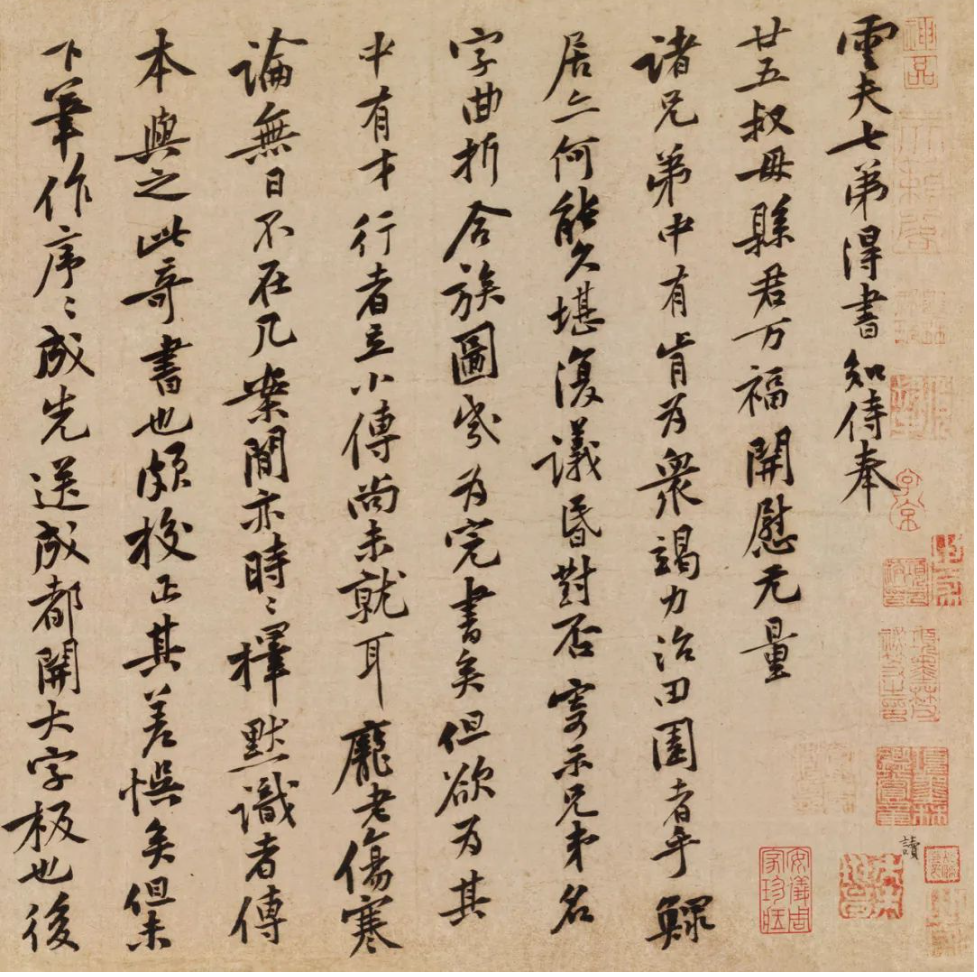 雲夫七弟得書知侍奉
廿五叔母縣君万福開慰无量
諸兄弟中有肯为衆竭力治田園者乎鰥
居亦何能久堪復議昏對否寄示兄弟名
字曲折合族圖芓为完書矣但欲为其
中有才行者立小傳尚未就耳龐老傷寒
論無日不在几案間亦時〻擇默識者傳
本與之此奇書也頗校正其差悮矣但未
下筆作序〻成先送成都開大字板也後
讀
安儀周
家珍藏